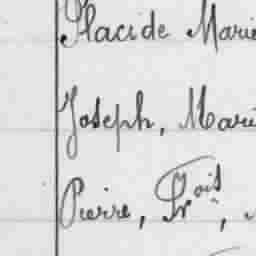 Placide Marie
Joseph, Marie
Pierre, Fr.ois,